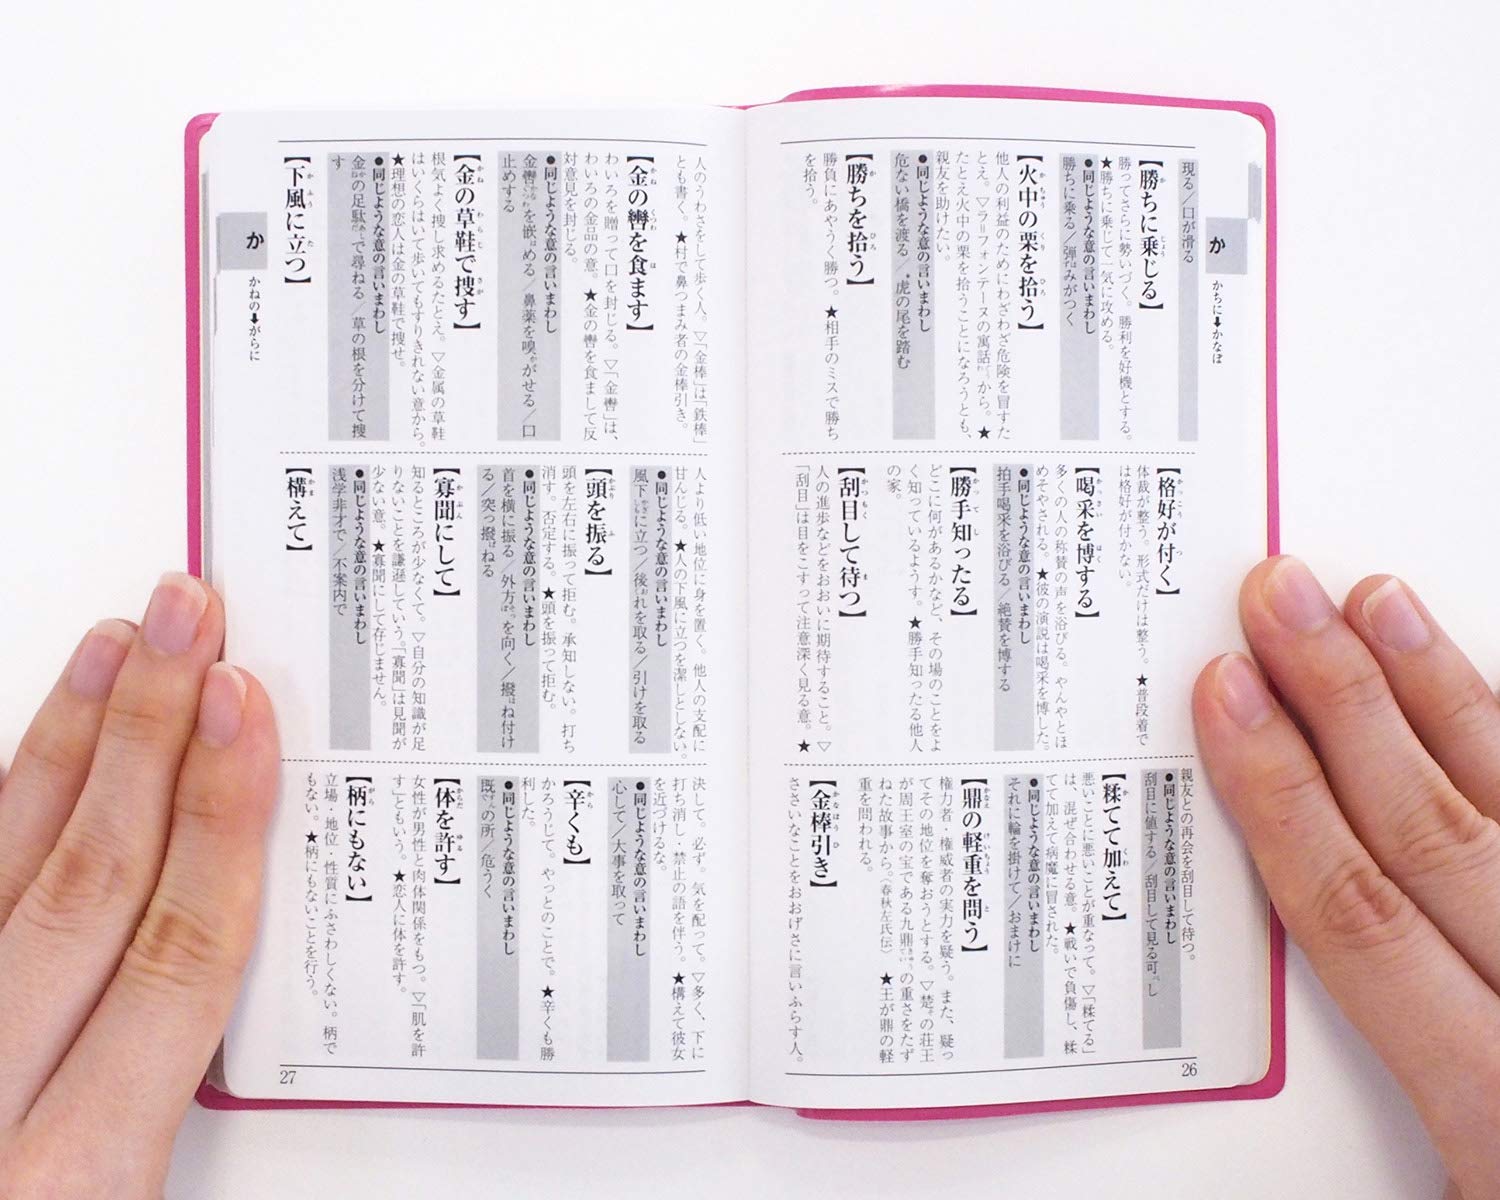 か
かちに➡かなぼ
現る／口が滑る
【勝ちに乗じる】
か じょう
勝ってさらに勢いづく。勝利を好機とする。
★勝ちに乗じて一気に攻める。
●同じような意の言いまわし
勝ちに乗る／弾みがつく
【火中の栗を拾う】
かちゅう くり ひろ
他人の利益のためにわざわざ危険を冒すた
とえ。▽ラ＝フォンテーヌの寓話から。★
たとえ火中の栗を拾うことになろうとも、
親友を助けたい。
●同じような意の言いまわし
危ない橋を渡る／虎の尾を踏む
【勝ちを拾う】
か ひろ
勝負にあやうく勝つ。★相手のミスで勝ち
を拾う。
【格好が付く】
かっこう つ
体裁が整う。形式だけは整う。★普段着で
は格好が付かない。
【喝采を博する】
かっさい はく
多くの人の称賛の声を浴びる。やんやとほ
めそやされる。★彼の演説は喝采を博した。
●同じような意の言いまわし
拍手喝采を浴びる／絶賛を博する
【勝手知ったる】
かって し
どこに何があるかなど、その場のことをよ
く知っているようす。★勝手知ったる他人
の家。
【刮目して待つ】
かつもく ま
人の進歩などをおおいに期待すること。▽
「刮目」は目をこすって注意深く見る意。★
親友との再会を刮目して待つ。
●同じような意の言いまわし
刮目に値する／刮目して見る可べし
【糅てて加えて】
か くわ
悪いことに悪いことが重なって。▽「糅てる」
は、混ぜ合わせる意。★戦いで負傷し、糅
てて加えて病魔に冒された。
●同じような意の言いまわし
それに輪を掛けて／おまけに
【鼎の軽重を問う】
かなえ けいちょう と
権力者・権威者の実力を疑う。また、疑っ
てその地位を奪おうとする。▽楚の荘王
が周王室の宝である九鼎の重さをたず
ねた故事から。〈春秋左氏伝〉★王が鼎の軽
重を問われる。
【金棒引き】
かなぼう ひ
ささいなことをおおげさに言いふらす人。
26
か
かねの➡がらに
人のうわさをして歩く人。▽「金棒」は「鉄棒」
とも書く。★村で鼻つまみ者の金棒引き。
【金の轡を食ます】
かね くつわ は
わいろを贈って口を封じる。▽「金轡」は、
わいろの金品の意。★金の轡を食まして反
対意見を封じる。
●同じような意の言いまわし
金轡を嵌める／鼻薬を嗅がせる／口
止めする
【金の草鞋で捜す】
かね わらじ さが
根気よく捜し求めるたとえ。▽金属の草鞋
はいくらはいて歩いてもすりきれない意から。
★理想の恋人は金の草鞋で捜せ。
●同じような意の言いまわし
金の足駄で尋ねる／草の根を分けて捜
す
【下風に立つ】
かふう た
人より低い地位に身を置く。他人の支配に
甘んじる。★人の下風に立つを潔しとしない。
●同じような意の言いまわし
風下に立つ／後れを取る／引けを取る
【頭を振る】
かぶり ふ
頭を左右に振って拒む。承知しない。打ち
消す。否定する。★頭を振って拒む。
●同じような意の言いまわし
首を横に振る／外方を向く／撥ね付け
る／突っ撥ねる
【寡聞にして】
かぶん
知るところが少なくて。▽自分の知識が足
りないことを謙遜していう。「寡聞」は見聞が
少ない意。★寡聞にして存じません。
●同じような意の言いまわし
浅学非才で／不案内で
【構えて】
かま
決して。必ず。気を配って。▽多く、下に
打ち消し・禁止の語を伴う。★構えて彼女
を近づけるな。
●同じような意の言いまわし
心して／大事を取って
【辛くも】
から
かろうじて。やっとのことで。★辛くも勝
利した。
●同じような意の言いまわし
既の所／危うく
【体を許す】
からだ ゆる
女性が男性と肉体関係をもつ。▽「肌を許
す」ともいう。★恋人に体を許す。
【柄にもない】
がら
立場・地位・性質にふさわしくない。柄で
もない。★柄にもないことを行う。
27